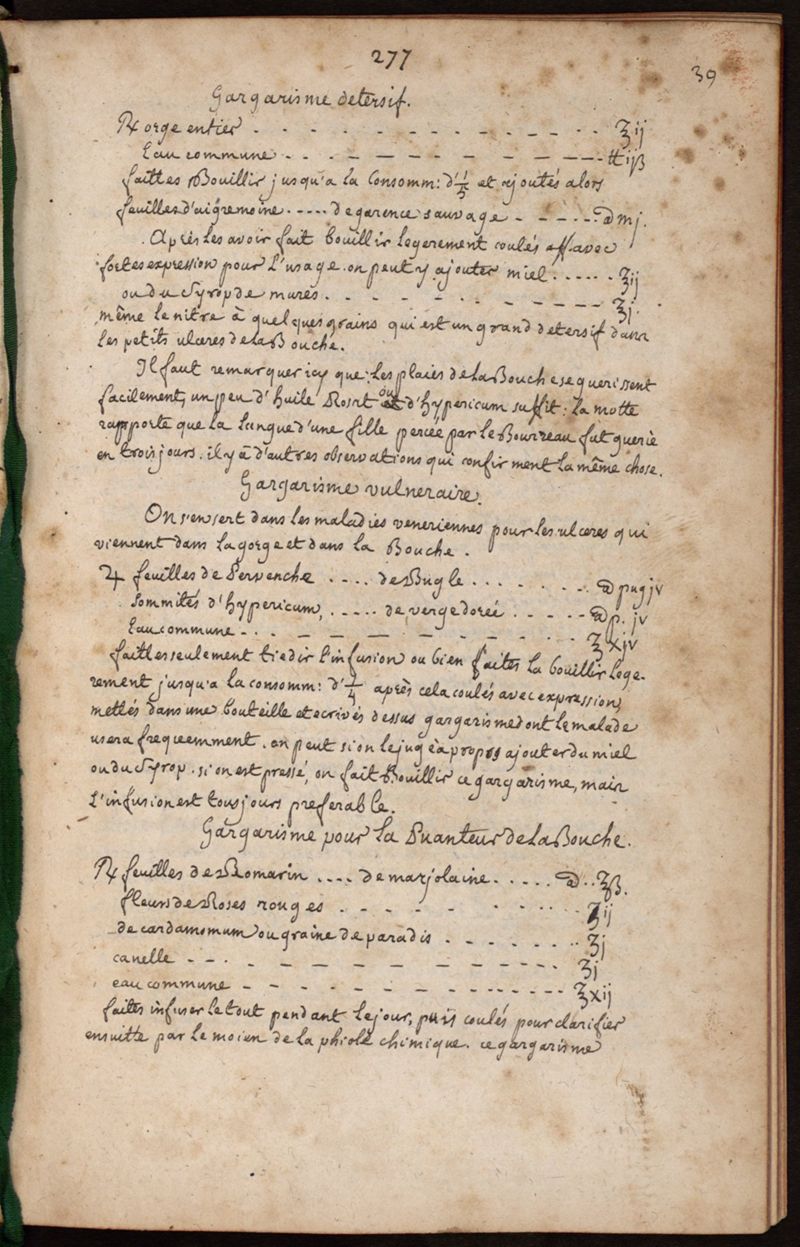 277
39
Gargarisme detersif.
℞ orge entier . . . . . . . . . . . . ℥ij
Eau commune . . . . . . . . . . . ℔iβ
faittes Bouillir jusqu'a la Consomm: d'⅓ et ajoutés alors
feuilles d'aigremoine ..... de garence sauvage . . . . . . a mj.
Après les avoir fait bouillir legerement coulés avec
fortes expression pour l'usage. on peut y ajouter miel ...... ℥ij
ou du Syrop de mures. . . . . . . . . . . . ℥j.
même le nitre à quelques grains qui est un grand detersif dans
les petits ulceres de la Bouche.
Il faut remarquer icy que: les plaies de la Bouche se guerissent
facilement, un peu d'huile Rosat ou d'hypericum suffit: La motte
rapporte que la langue d'une fille percée par le Bourreau fut guerie
en trois jours. il y à d'autres observations qui confirment la même chose.
Gargarisme vulneraire.
On s'en sert dans les maladies veneriennes pour les ulceres qui
viennent dans la gorge et dans la Bouche.
♃ feuilles de Pervenche .... de Bugle ........ a pugjv
Sommités d'hypericum, ..... de verge dorée ...... a p. jv
Eau commune . . . . . . . . . . . . ℥xjv
faittes seulement tiedir l'infusion ou bien faites la bouillir lege-
rement jusqu'a la consomm: d'¼ après cela coulés avec expression,
mettés dans une bouteille et ecrivés dessus gargarisme dont le malade
usera frequemment. on peut si on le juge à propos ajouter du miel
ou du Syrop. si on est pressé, on fait Bouillir ce gargarisme, mais
L'infusion est tousjours preferable.
Gargarisme pour la Puanteur de la Bouche.
℞ feuilles de Romarin .... de marjolaine ..... a .. ℥β.
fleurs de Roses rouges . . . . . . . . . ʒij
de cardamomum ou graine de paradis . . . . . . . ʒj
canelle . . . . . . . . . . . . . ʒj
eau commune . . . . . . . . . . . ℥xij
faites infuser le tout pendant le jour, puis coulés pour clarifier
ensuitte par le moien de la phiole chimique. ce gargarisme